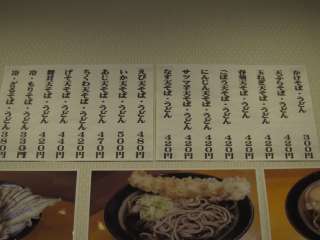 かけそば・うどん 300円
天ぷらそば・うどん 420円
天玉そば・うどん 470円
玉ねぎ天そば・うどん 420円
春菊天そば・うどん 420円
ごぼう天そば・うどん 420円
にんじん天そば・うどん 420円
サンマ天そば・うどん 420円
なす天そば・うどん 420円
えび天そば・うどん 480円
いか天そば・うどん 500円
あじ天そば・うどん 470円
ちくわ天そば・うどん 420円
げそ天そば・うどん 440円
舞茸天そば・うどん 420円
冷・もりそば・うどん 330円
冷・ざるそば・うどん 380円